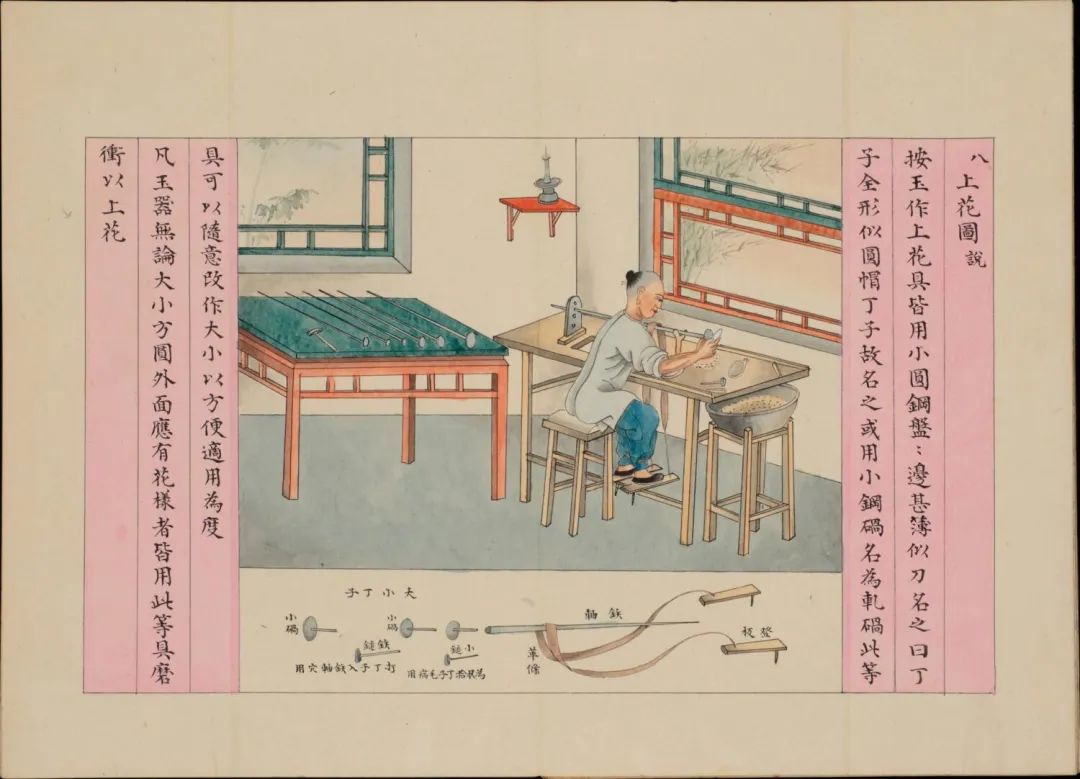 八上花圖說
按玉作上花具皆用小圓鋼盤：邊甚簿似刀名之曰丁
子全形似圓帽丁子故名之或用小鋼碢名為軋碢此等
具可以隨意改作大小以方便適用為度
凡玉器無論大小方圓外面應有花樣者皆用此等具磨
衝以上花
大小丁子
登板
鉄軸
革條
小碢
小碢
小鎚
為收拾丁子毛病用
鉄鎚
打丁子入鉄軸穴用